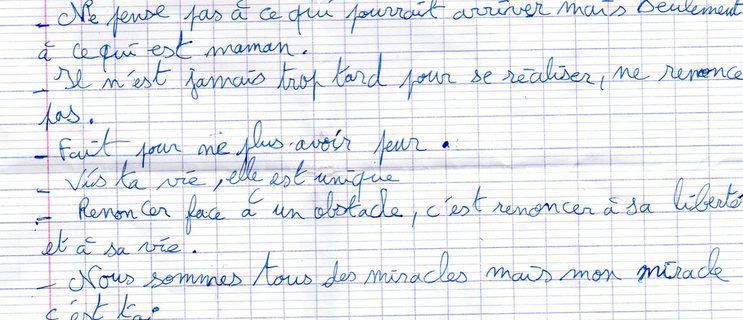 - Ne pense pas à ce qui pourrait arriver mais seulement
à ce qui est maman.
- Il n'est jamais trop tard pour se réaliser, ne renonce
pas.
- Fait pour ne plus avoir peur.
- Vis ta vie, elle est unique
- Renoncer face à un obstacle, c'est renoncer à sa liberté
et à sa vie.
- Nous sommes tous des miracles mais mon miracle
c'est toi